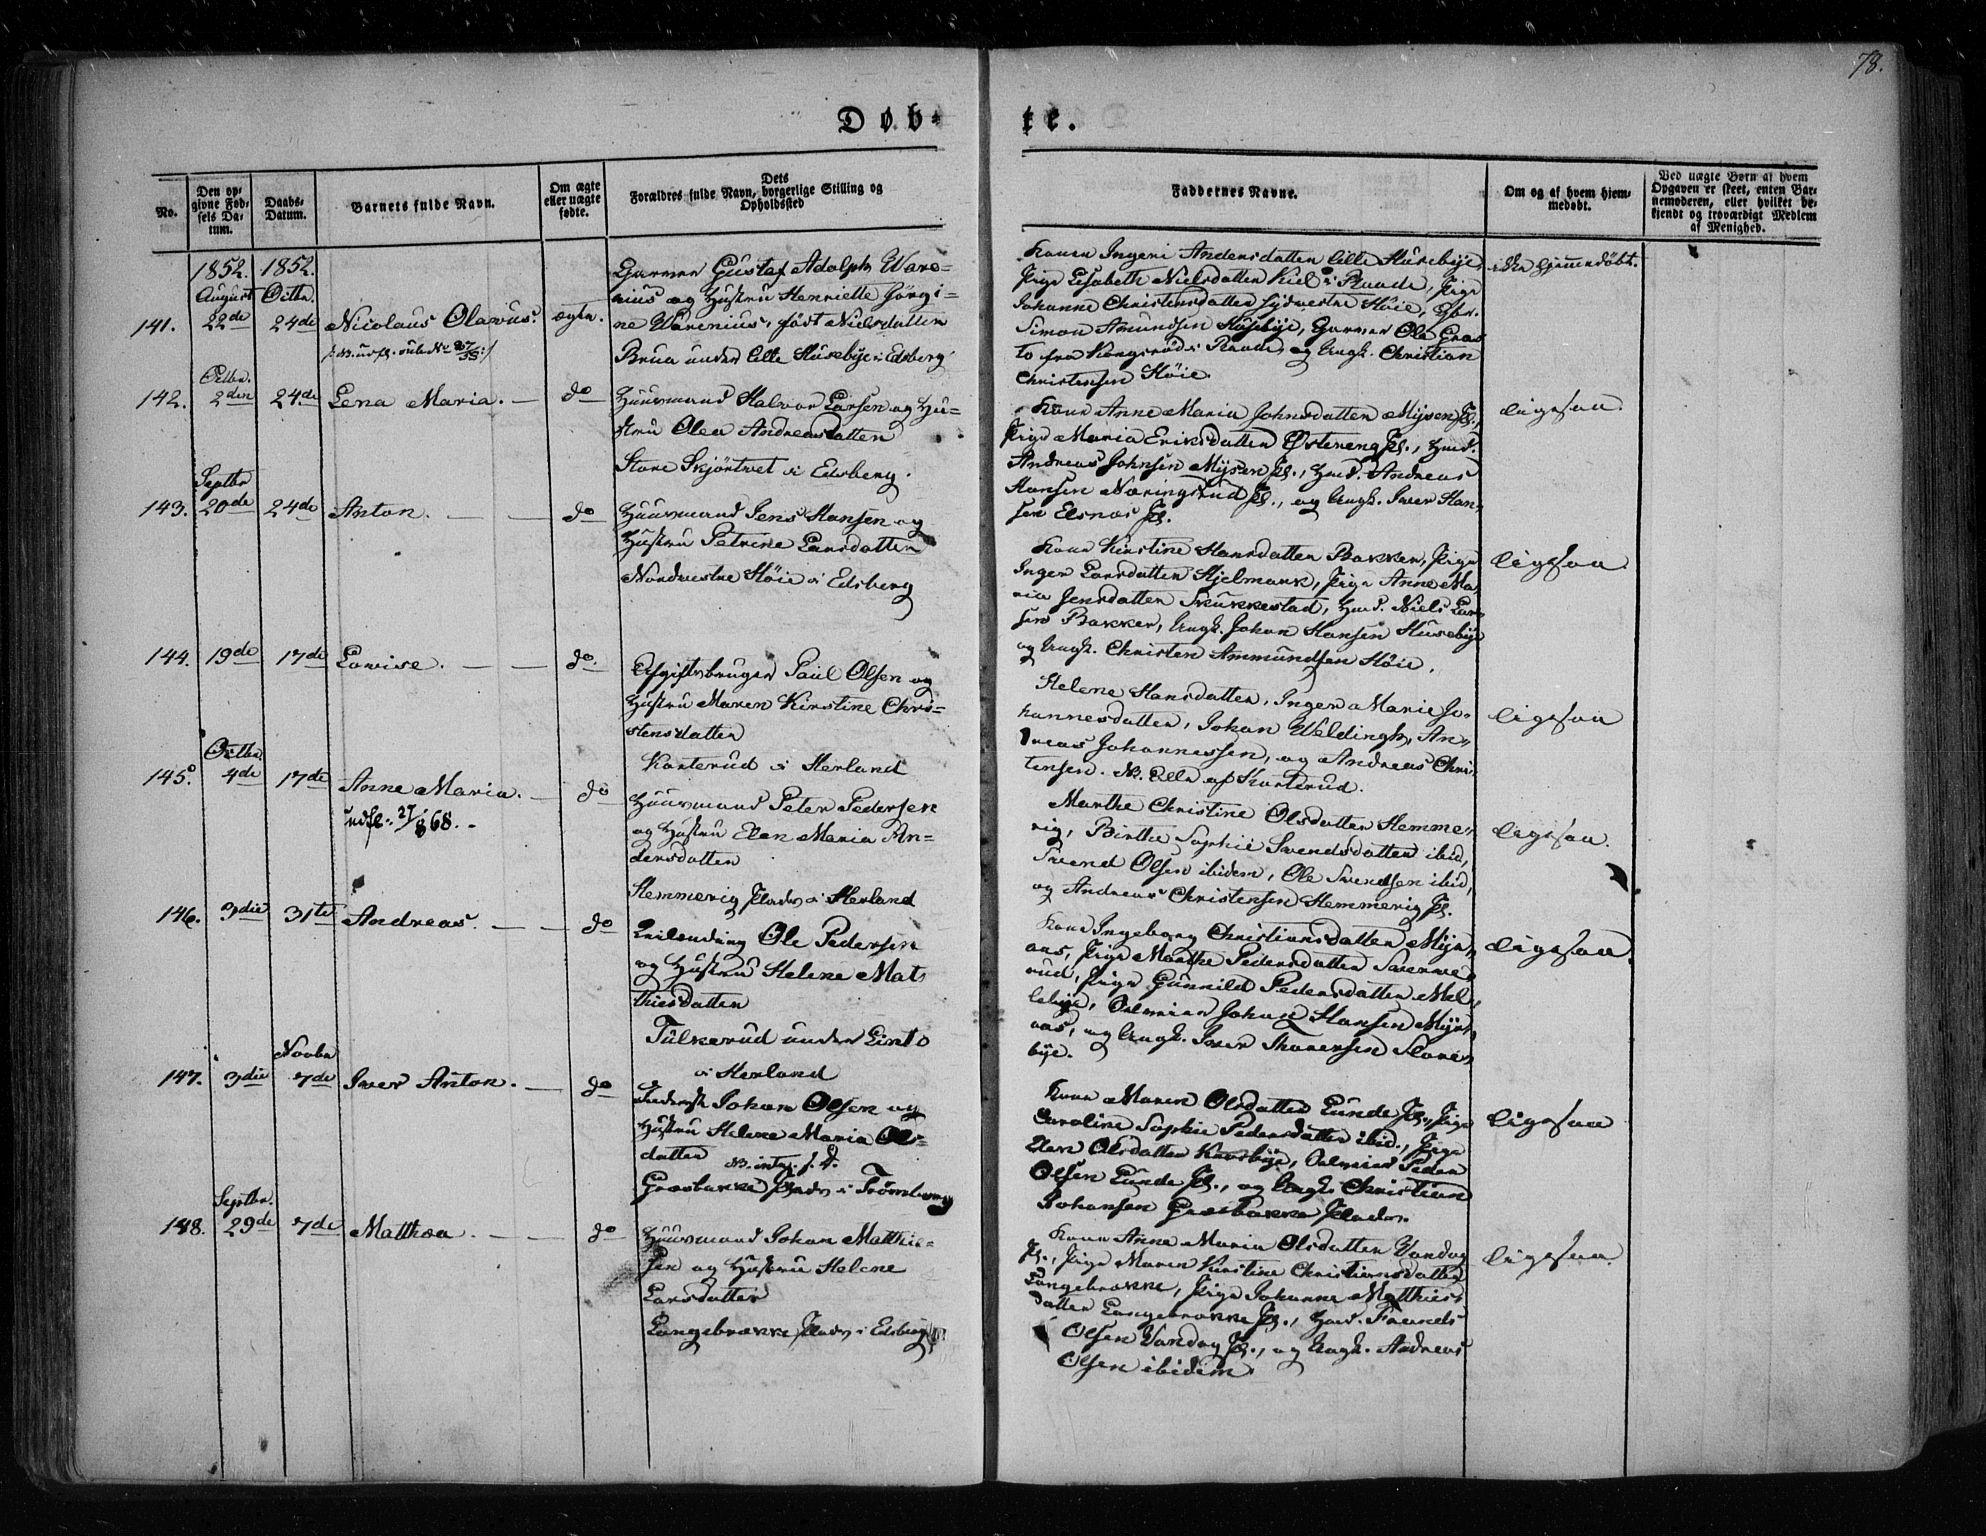 78.
Døb-
te.
No.
Den op-
givne Fød-
sels Da-
tum.
Daabs-
Datum.
Barnets fulde Navn.
Om ægte
eller uægte
fødte.
Dets
Forældres fulde Navn, borgerlige Stilling og
Opholdssted
Faddernes Navne.
Om og af hvem hjem-
medøbt.
Ved uægte Børn af hvem
Opgaven er skeet, enten Bar-
nemoderen, eller hvilket be-
kjendt og troværdigt Medlem
af Menighed.
1852. 1852.
August Octbr.
141. 22de 24de Nicolaus Olavus. ægte.
Garver Gustaf Adolph Ware-
nius og Hustru Henriette Jörgi-
ne Warenius, født Nielsdatten
Brua under Lille Husebye i Edsberg
Kone Ingeri Andersdatten Lille Husebye,
Pige Elisabeth Nielsdatten Kiel i Raade, Pige
Johanne Christensdatten Sydvestre Höie, Gbr.
Simon Amundsen Husebye, Garver Ole Gras
to fra Kongsrød i Raade, og Ungk. Christian
Christensen Höie.
ikke hjemmedøbt.
Octbr.
142. 2den 24de Lena Maria. do
Huusmand Halvor Larsen og Hu-
stru Olea Andreasdatten
Store Skjörtvet i Edsberg.
Kone Anne Maria Johnsdatten Mysen Pl.,
Pige Maria Eriksdatten Østereng Pl., Hmd.
Andreas Johnsen Mysen Pl., Hmd. Andreas
Hansen Næringsrud Pl., og Ungk. Iver Han-
sen Elsnæs Pl.
ligesaa.
Septbr
143. 20de 24de Anton. do
Huusmand Jens Hansen og
Hustru Petrine Larsdatten
Nordvestre Höie i Edsberg
Kone Kirstine Hansdatten Bakker, Pige
Inger Larsdatten Hjelmark, Pige Anne Ma-
ria Jensdatten Skukkestad, Hmd. Niels Lar-
sen Bakker, Ungk. Johan Hansen Husebye
og Ungk. Christen Ammundsen Höie.
ligesaa.
144. 19de 17de Lovise. do.
Afgiftsbruger Paul Olsen og
Hustru Maren Kirstine Chri-
stensdatter
Karterud i Herland
Helene Hansdatter, Inger Marie Jo-
hannesdatter, Johan Weldingh, An-
dreas Johannessen, og Andreas Chri-
stensen. NB. Alle af Karterud.
ligesaa
Octbr.
145. 4de 17de Anne Maria. do
Huusmand Peter Pedersen
og Hustru Elen Maria An-
dersdatten
Hemmerig Plads i Herland
Marthe Christine Olsdatten Hemme-
rig, Birthe Sophie Svendsdatten ibid,
Svend Olsen ibidem, Ole Svendsen ibid,
og Andreas Christensen Hemmerig Pl.
ligesaa.
146. 3die 31te Andreas. do
Leilending Ole Pedersen
og Hustru Helene Mat-
thiesdatten
Tulkerud under Linto
i Herland
Kone Ingeborg Christiansdatten Myr-
aas, Pige Marthe Pedersdatten Sverve-
rud, Pige Gunnild Pedersdatten Mel-
lebye, Johan Hansen Myr-
aas, og Ungk. Iver Thoresen Slore-
bye.
ligesaa.
Novbr
147. 3die 7de Iver Anton. do
Johan Olsen og
Hustru Helene Maria Ols-
datter
Græsbakke Plads i Trømborg
Kone Maren Olsdatten Lunde Pl., Pige
Caroline Sophie Pedersdatten ibid., Pige
Elen Olsdatten Kaasbye, Peder
Olsen Lunde Pl., og Ungk. Christian
Johansen Græsbakke Plads.
ligesaa
Septbr.
148. 29de 7de Matthea. do
Huusmand Johan Matthie-
sen og Hustru Helene
Larsdatter
Langebrække Plads i Edsberg
Kone Anne Maria Olsdatten Vandog
Pl., Pige Maren Kirstine Christiansdatten
Langebrække, Pige Johanne Matthies-
datten Langebrække Pl., Hmd.
Olsen Vandog Pl., og Ungk. Andreas
Olsen ibidem
ligesaa.